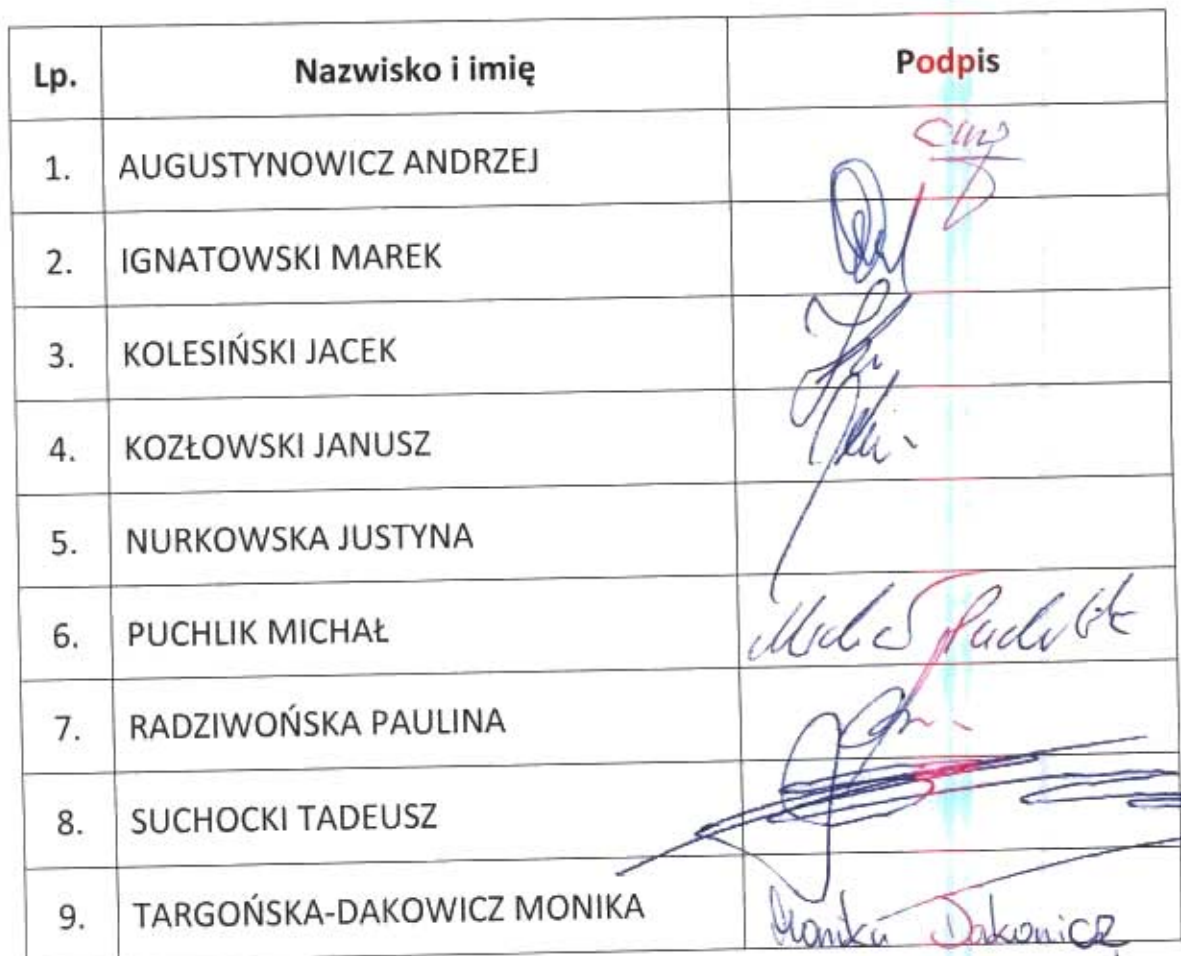 Lp. Nazwisko i imię Podpis
1. AUGUSTYNOWICZ ANDRZEJ
2. IGNATOWSKI MAREK
3. KOLESIŃSKI JACEK
4. KOZŁOWSKI JANUSZ
5. NURKOWSKA JUSTYNA
6. PUCHLIK MICHAŁ Michał Puchlik
7. RADZIWOŃSKA PAULINA
8. SUCHOCKI TADEUSZ
9. TARGOŃSKA-DAKOWICZ MONIKA Monika Dakowicz